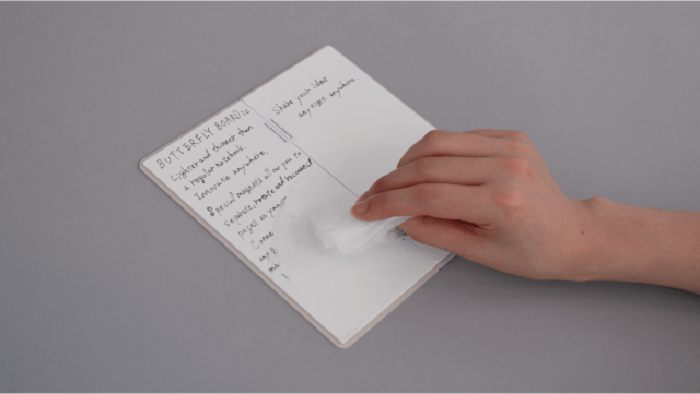 BUTTERFLY BOARD 2
Lighter and thinner than
a regular notebook.
Innovate anywhere.
Special magnets allow you to
separate, rotate and reconnect
pages as you
Conne
way
ma
Share your idea
any time anywhere.